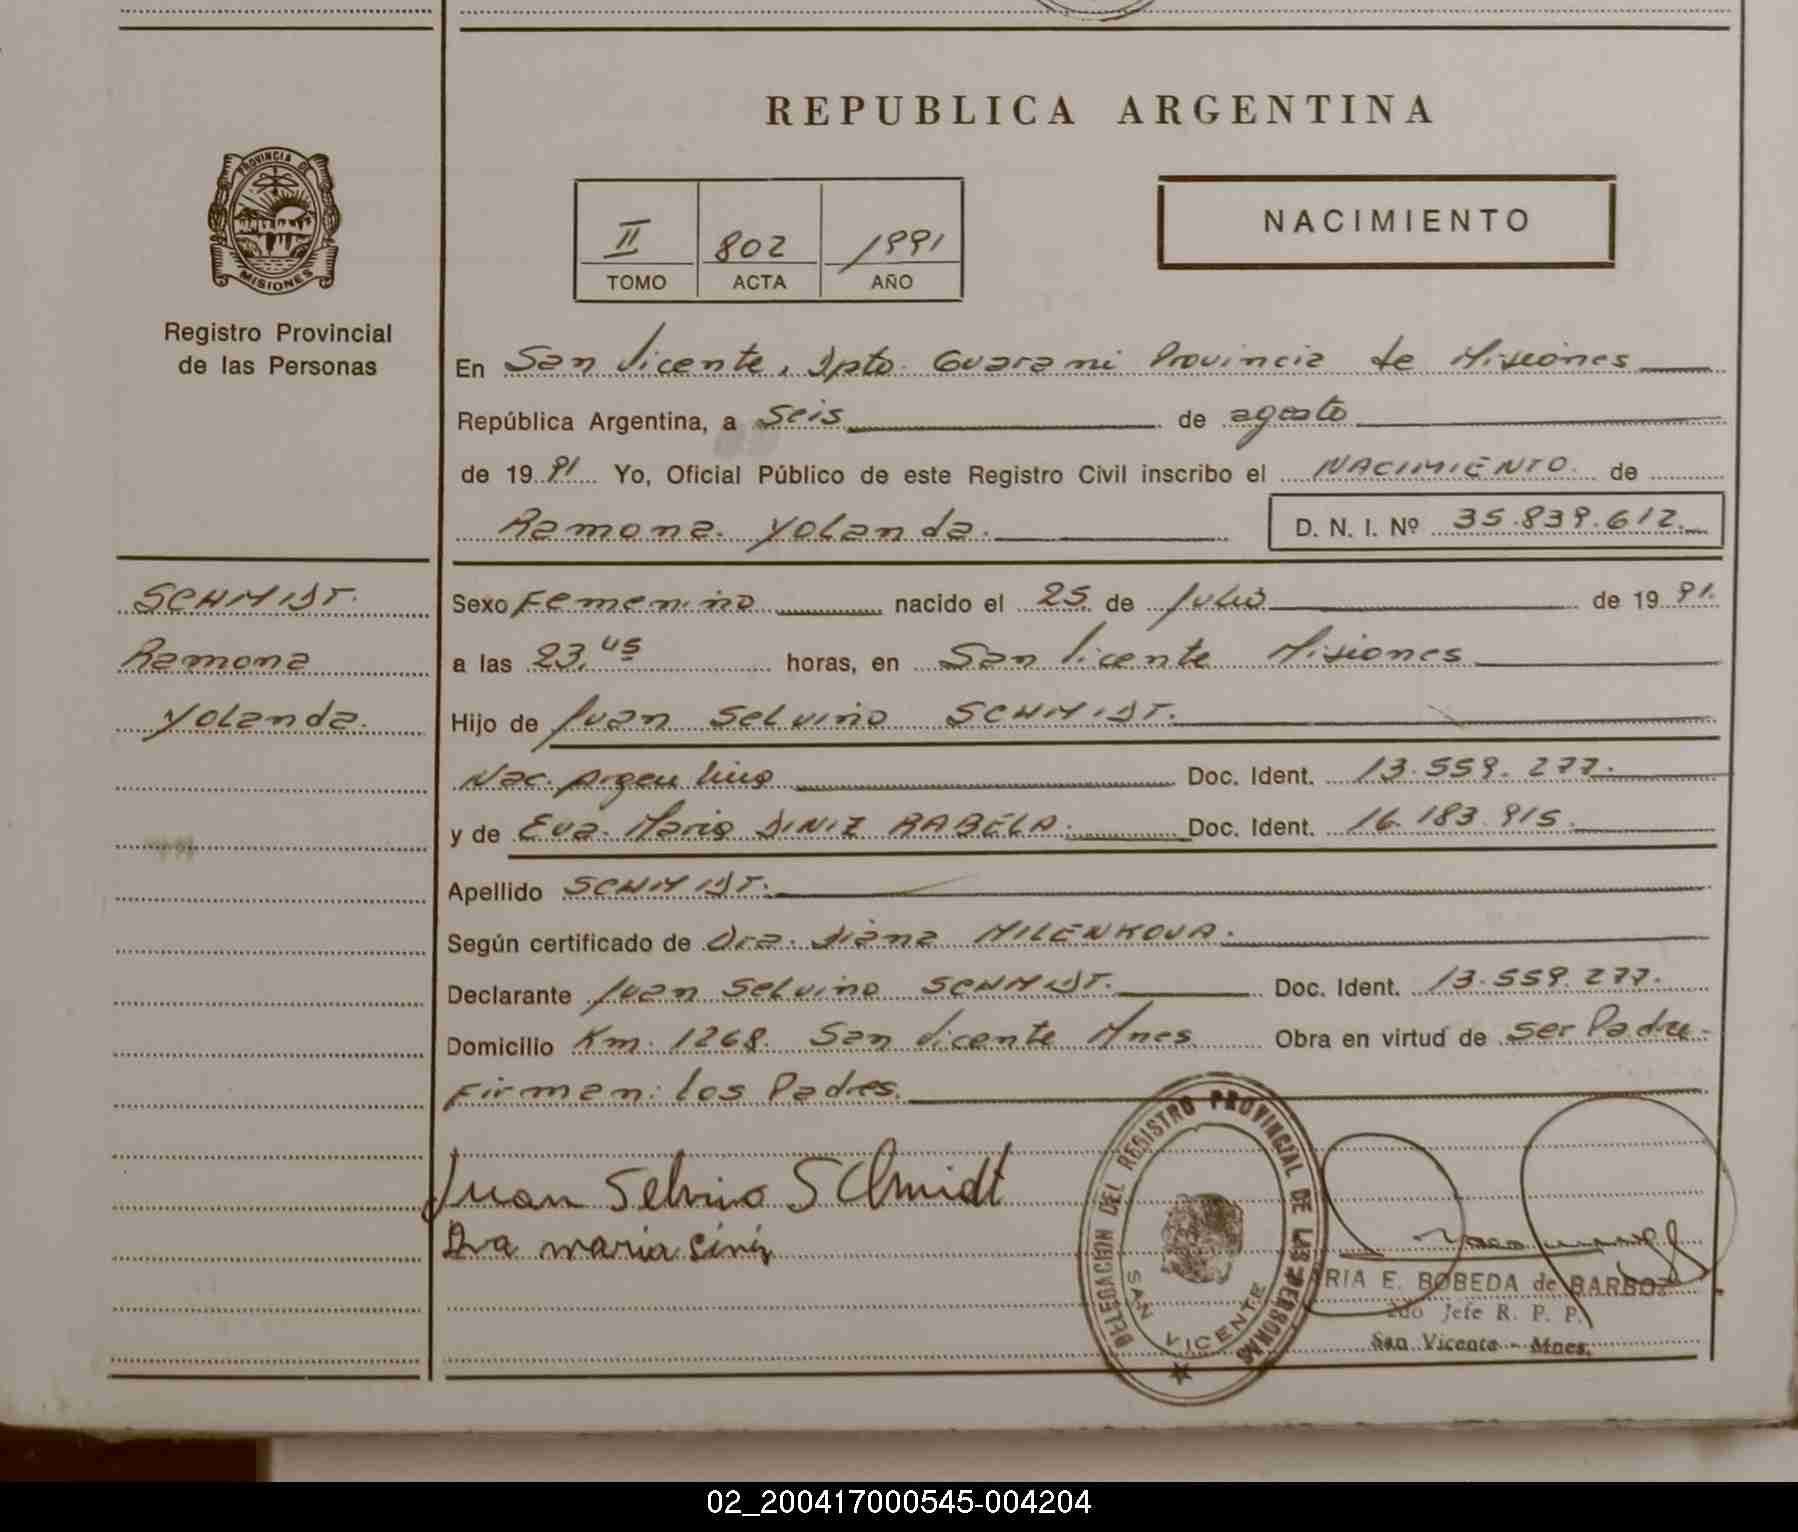 REPUBLICA ARGENTINA
PROVINCIA DE
MISIONES
Registro Provincial
de las Personas
II 802 1991
TOMO ACTA AÑO
NACIMIENTO
En San Vicente, Dpto. Guarani Provincia de Misiones
República Argentina, a seis de agosto
de 1991 Yo, Oficial Público de este Registro Civil inscribo el NACIMIENTO de
Ramona Yolanda. D. N. I. Nº 35.839.612.
SCHMIDT.
Ramona
Yolanda.
Sexo Femenino nacido el 25 de Julio de 1991.
a las 23,45 horas, en San Vicente Misiones
Hijo de Juan Selvino SCHMIDT.
Nac. Argentino Doc. Ident. 13.559.277.
y de Eva Maria DINIZ RABELA. Doc. Ident. 16.183.915.
Apellido SCHMIDT.
Según certificado de Dra. Diana MILENKOVA.
Declarante Juan Selvino SCHMIDT. Doc. Ident. 13.559.277.
Domicilio Km. 1268. San Vicente Mnes Obra en virtud de ser Padre.
Firman: los Padres.
Juan Selvino SChmidt
Eva maria
DELEGACION DEL REGISTRO PROVINCIAL DE LAS PERSONAS
SAN VICENTE
ARIA E. BOBEDA de BARBOZ
2do Jefe R. P. P.
San Vicente - Mnes.
02_200417000545-004204